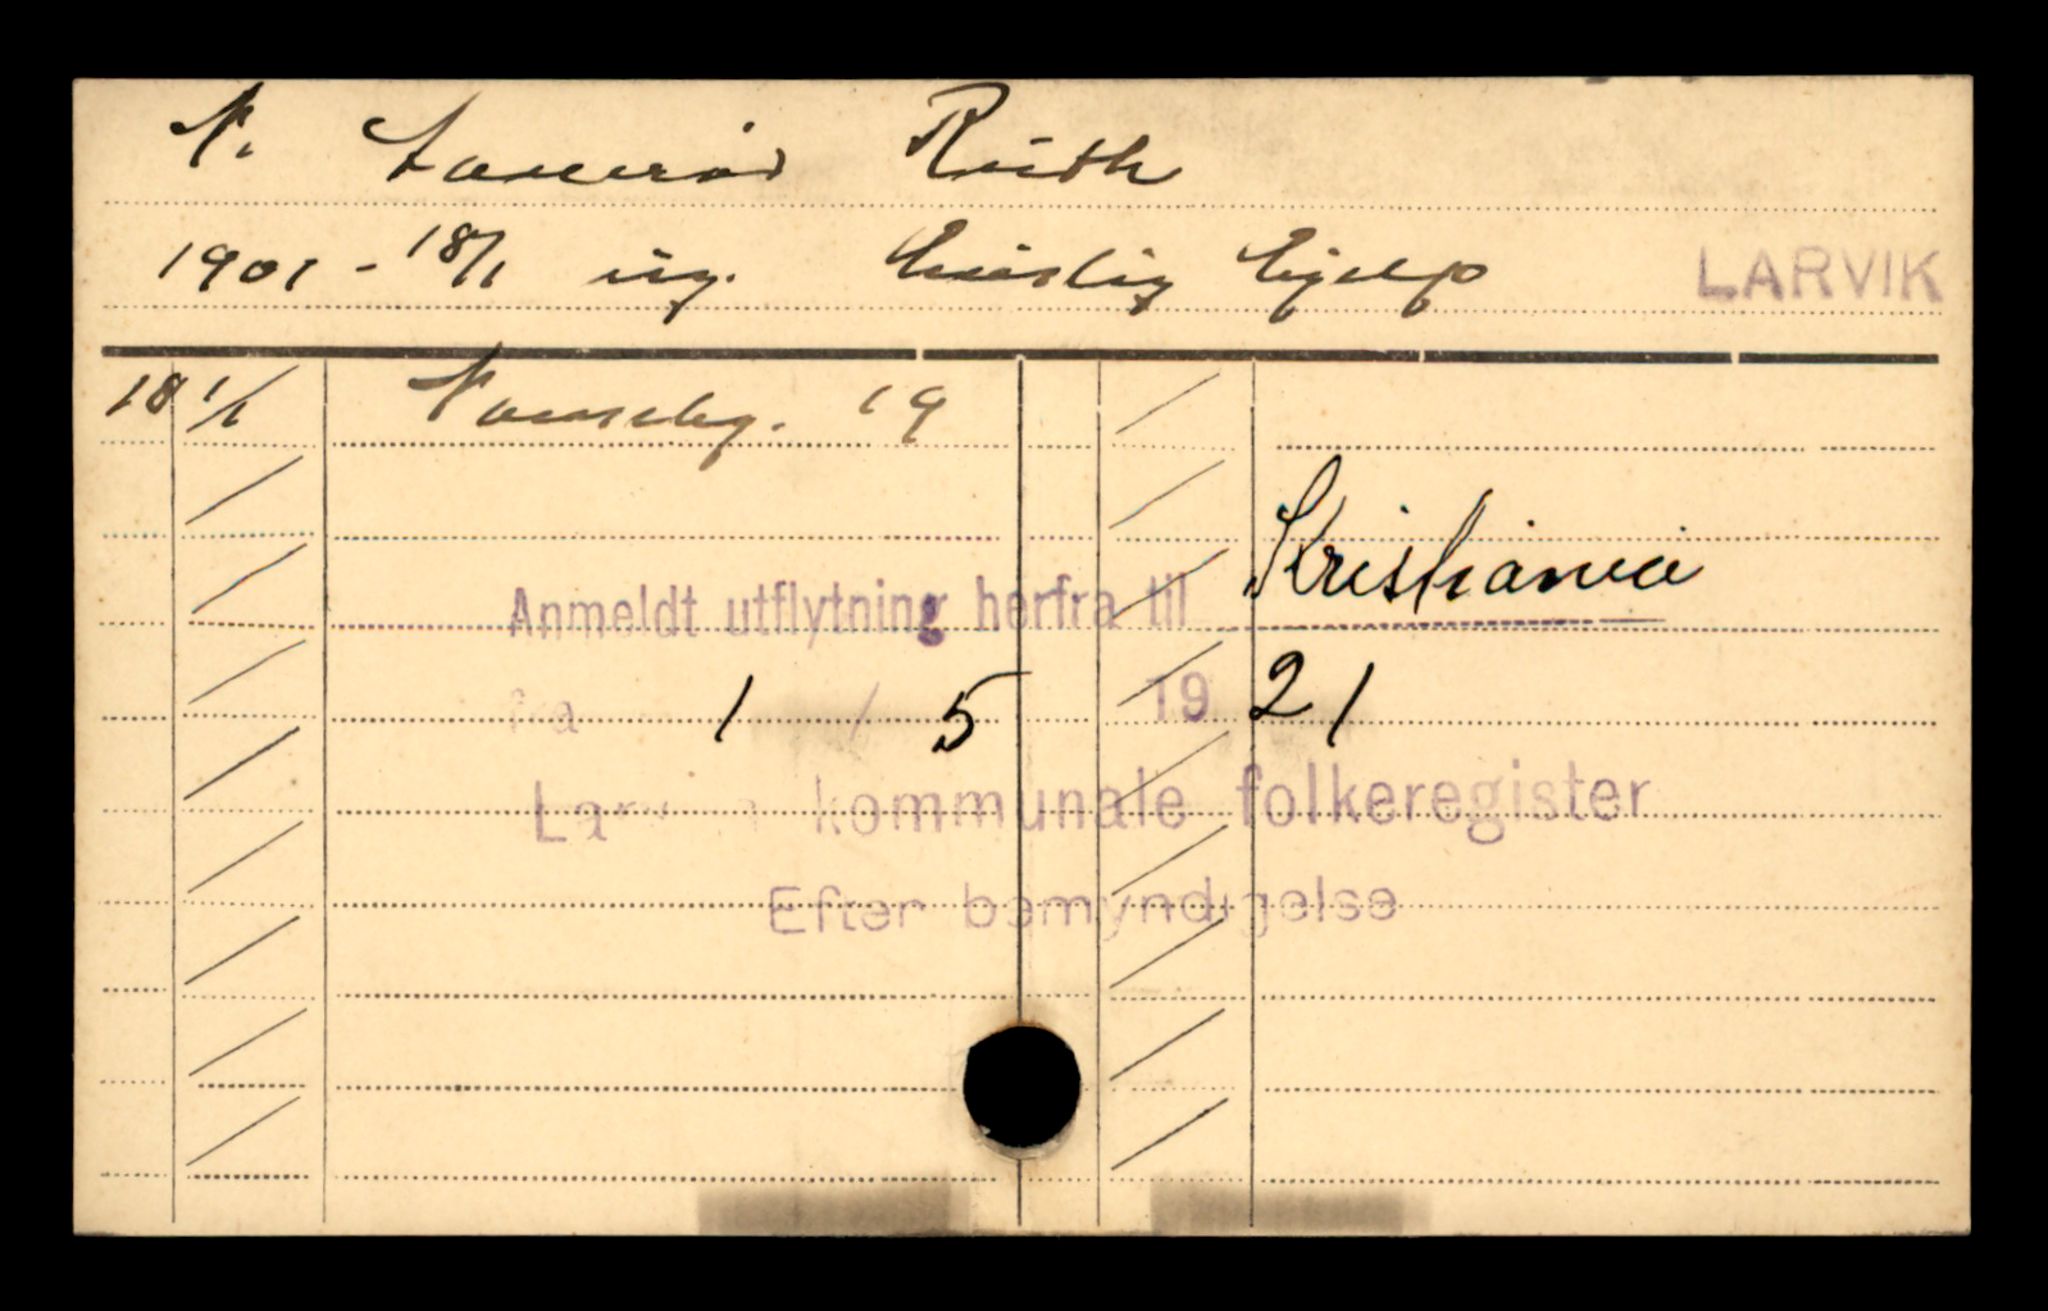 Ruth
1901 - 18/1 ug. huslig hjelp LARVIK
18 1/1 19
Kristiania
Anmeldt utflytning herfra til
fra 1 / 5 1921
kommunale folkeregister
Efter bemyndigelse